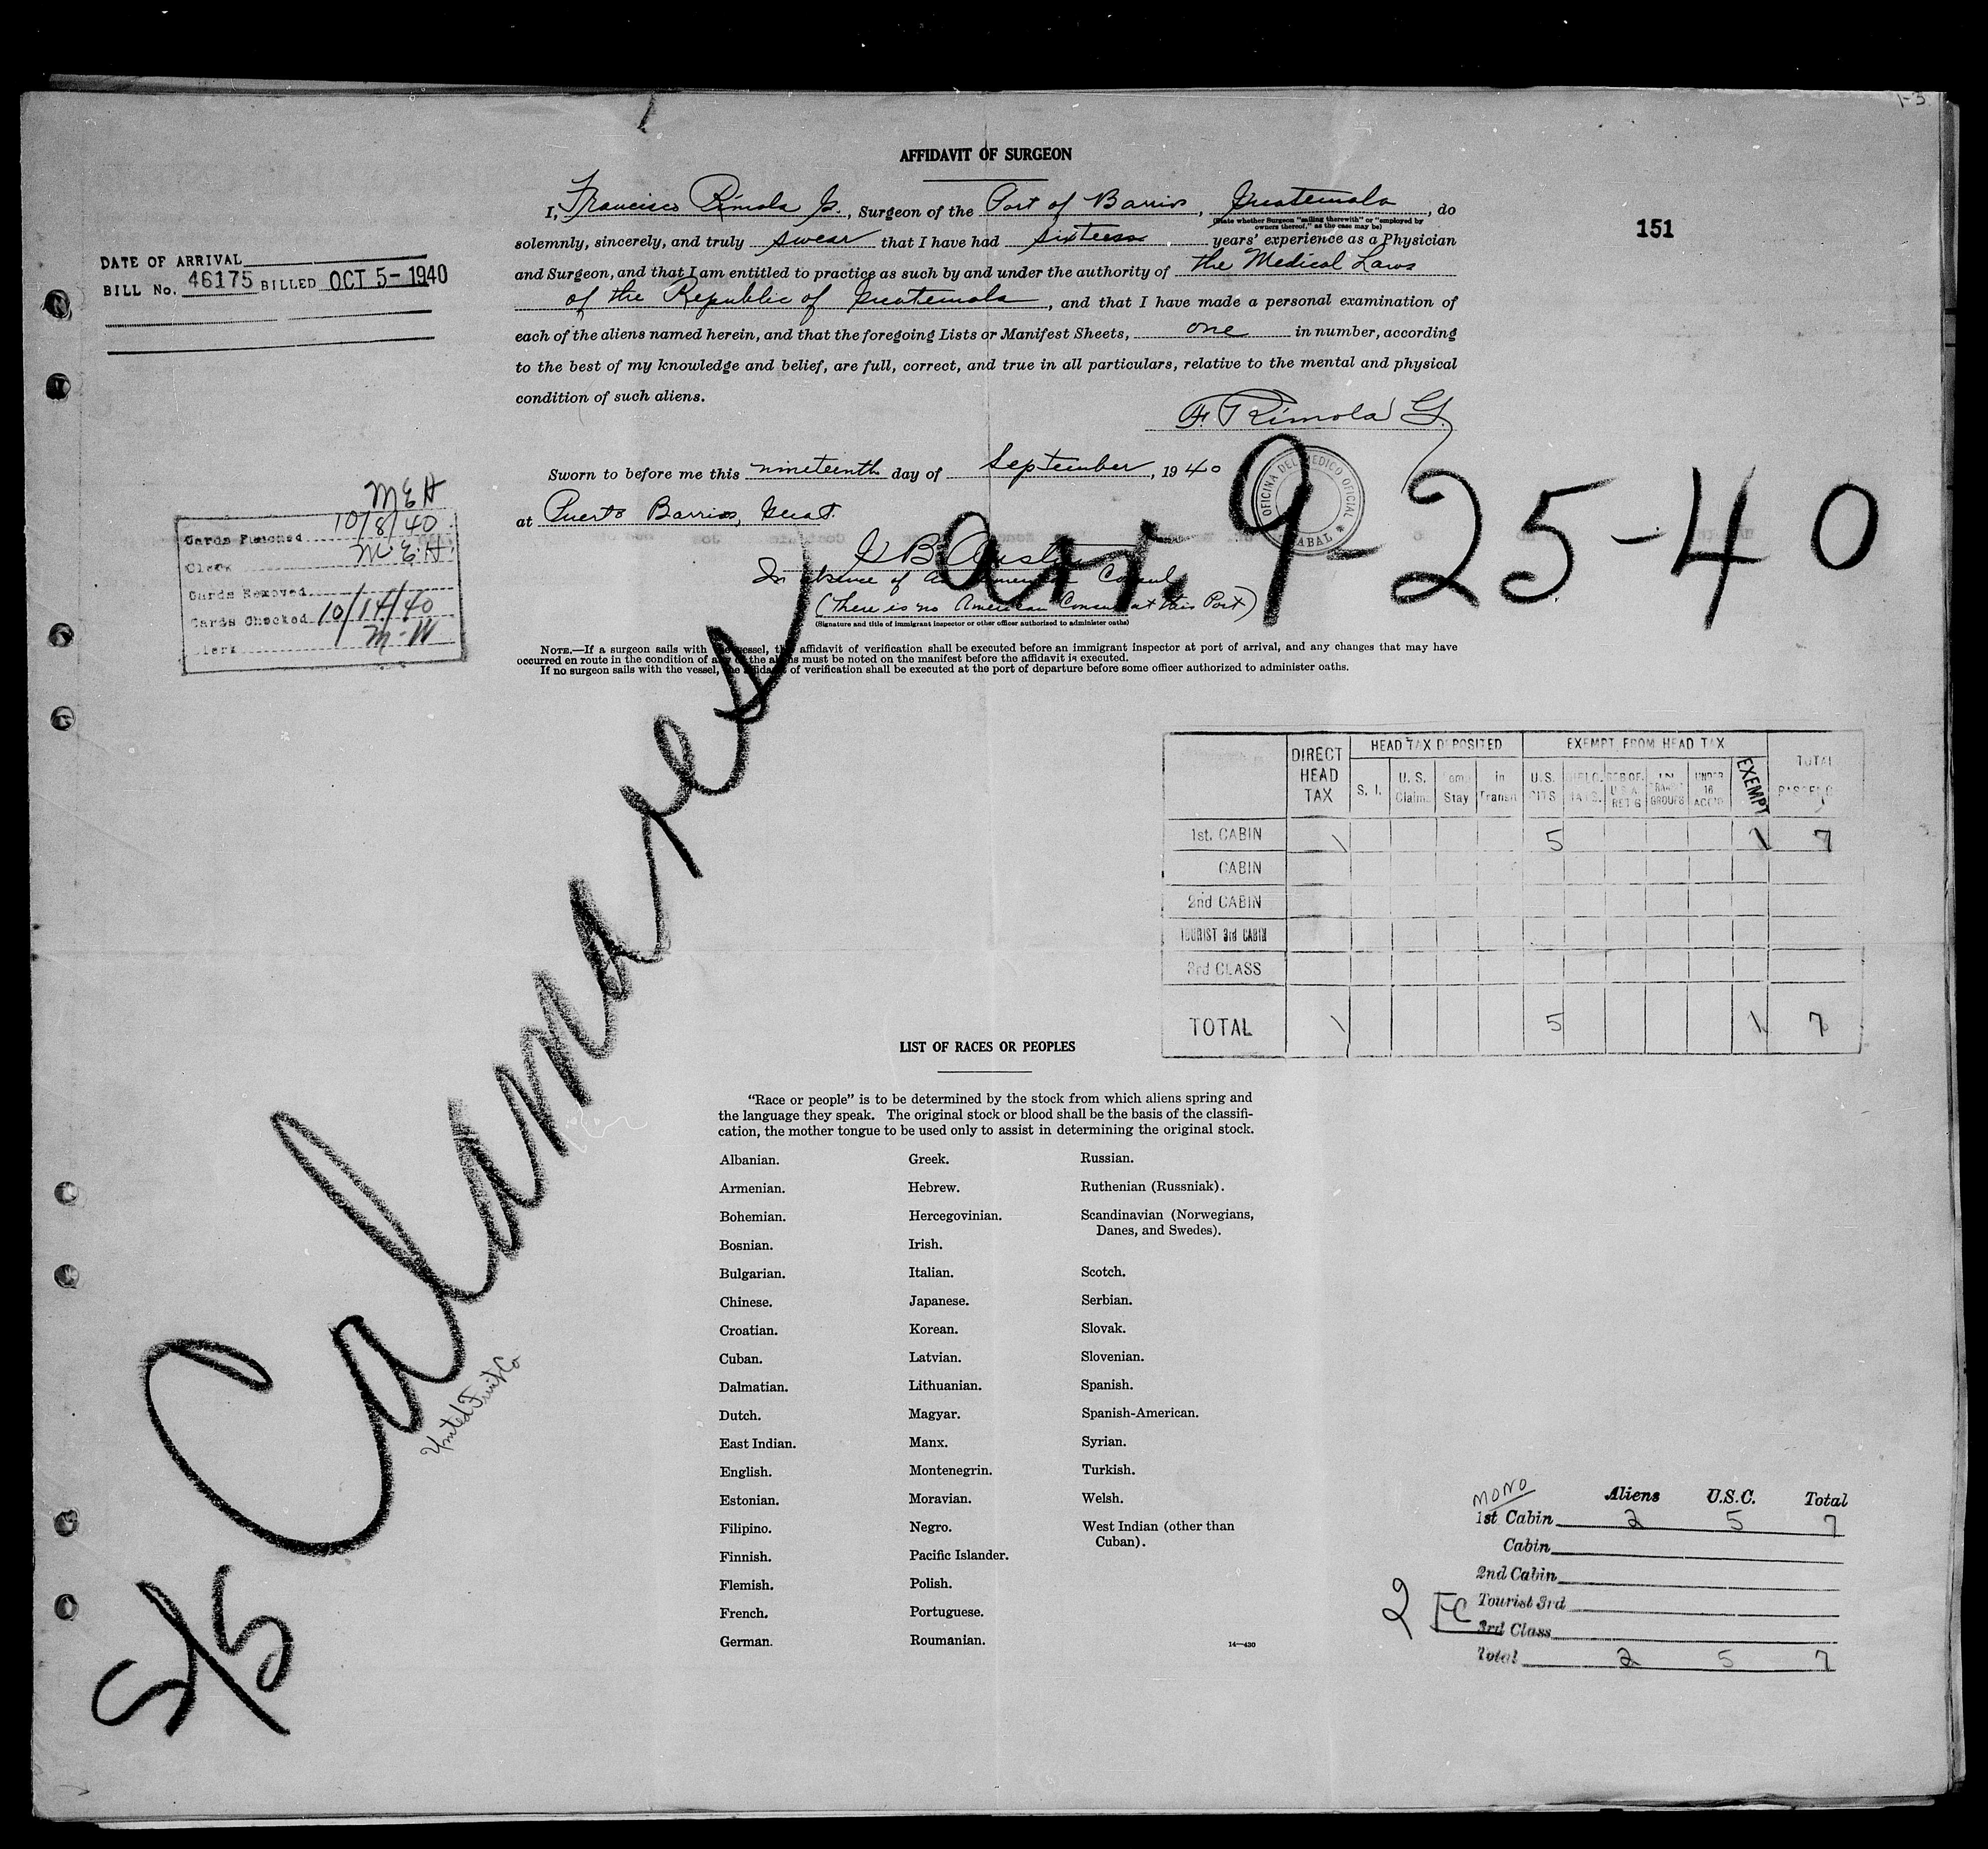 1-3
AFFIDAVIT OF SURGEON
I, Francisco Rimola G., Surgeon of the Port of Barrios, Guatemala, do
(State whether Surgeon "sailing therewith" or "employed by owners thereof," as the case may be)
solemnly, sincerely, and truly swear that I have had sixteen years' experience as a Physician
and Surgeon, and that I am entitled to practice as such by and under the authority of the Medical Laws
of the Republic of Guatemala, and that I have made a personal examination of
each of the aliens named herein, and that the foregoing Lists or Manifest Sheets, one in number, according
to the best of my knowledge and belief, are full, correct, and true in all particulars, relative to the mental and physical
condition of such aliens.
F. Rimola G.
151
DATE OF ARRIVAL
BILL No. 46175 BILLED OCT 5-1940
Sworn to before me this nineteenth day of September, 1940
at Puerto Barrios, Guat.
OFICINA DEL MEDICO OFICIAL
IZABAL
arr. 9-25-40
In absence of an American Consul
(There is no American Consul at this Port)
(Signature and title of immigrant inspector or other officer authorized to administer oaths)
M E H
Cards Punched 10/8/40
Clerk M.E.H.
Cards Removed
Cards Checked 10/14/40
Clerk M-W
NOTE.—If a surgeon sails with the vessel, the affidavit of verification shall be executed before an immigrant inspector at port of arrival, and any changes that may have
occurred en route in the condition of any of the aliens must be noted on the manifest before the affidavit is executed.
If no surgeon sails with the vessel, the affidavit of verification shall be executed at the port of departure before some officer authorized to administer oaths.
S/S Calamares
United Fruit Co
DIRECT HEAD TAX HEAD TAX DEPOSITED EXEMPT FROM HEAD TAX TOTAL
S. I. U. S. Claim. Stay in Transit U.S. CITS UNDER 16 EXEMPT
1st. CABIN 1 5 1 7
CABIN
2nd CABIN
TOURIST 3rd CABIN
3rd CLASS
TOTAL 1 5 1 7
LIST OF RACES OR PEOPLES
"Race or people" is to be determined by the stock from which aliens spring and
the language they speak. The original stock or blood shall be the basis of the classifi-
cation, the mother tongue to be used only to assist in determining the original stock.
Albanian. Greek. Russian.
Armenian. Hebrew. Ruthenian (Russniak).
Bohemian. Hercegovinian. Scandinavian (Norwegians,
Danes, and Swedes).
Bosnian. Irish.
Bulgarian. Italian. Scotch.
Chinese. Japanese. Serbian.
Croatian. Korean. Slovak.
Cuban. Latvian. Slovenian.
Dalmatian. Lithuanian. Spanish.
Dutch. Magyar. Spanish-American.
East Indian. Manx. Syrian.
English. Montenegrin. Turkish.
Estonian. Moravian. Welsh.
Filipino. Negro. West Indian (other than
Cuban).
Finnish. Pacific Islander.
Flemish. Polish.
French. Portuguese.
German. Roumanian.
14—430
MONO
Aliens U.S.C. Total
1st Cabin 2 5 7
Cabin
2nd Cabin
Tourist 3rd
3rd Class
Total 2 5 7
2 FC